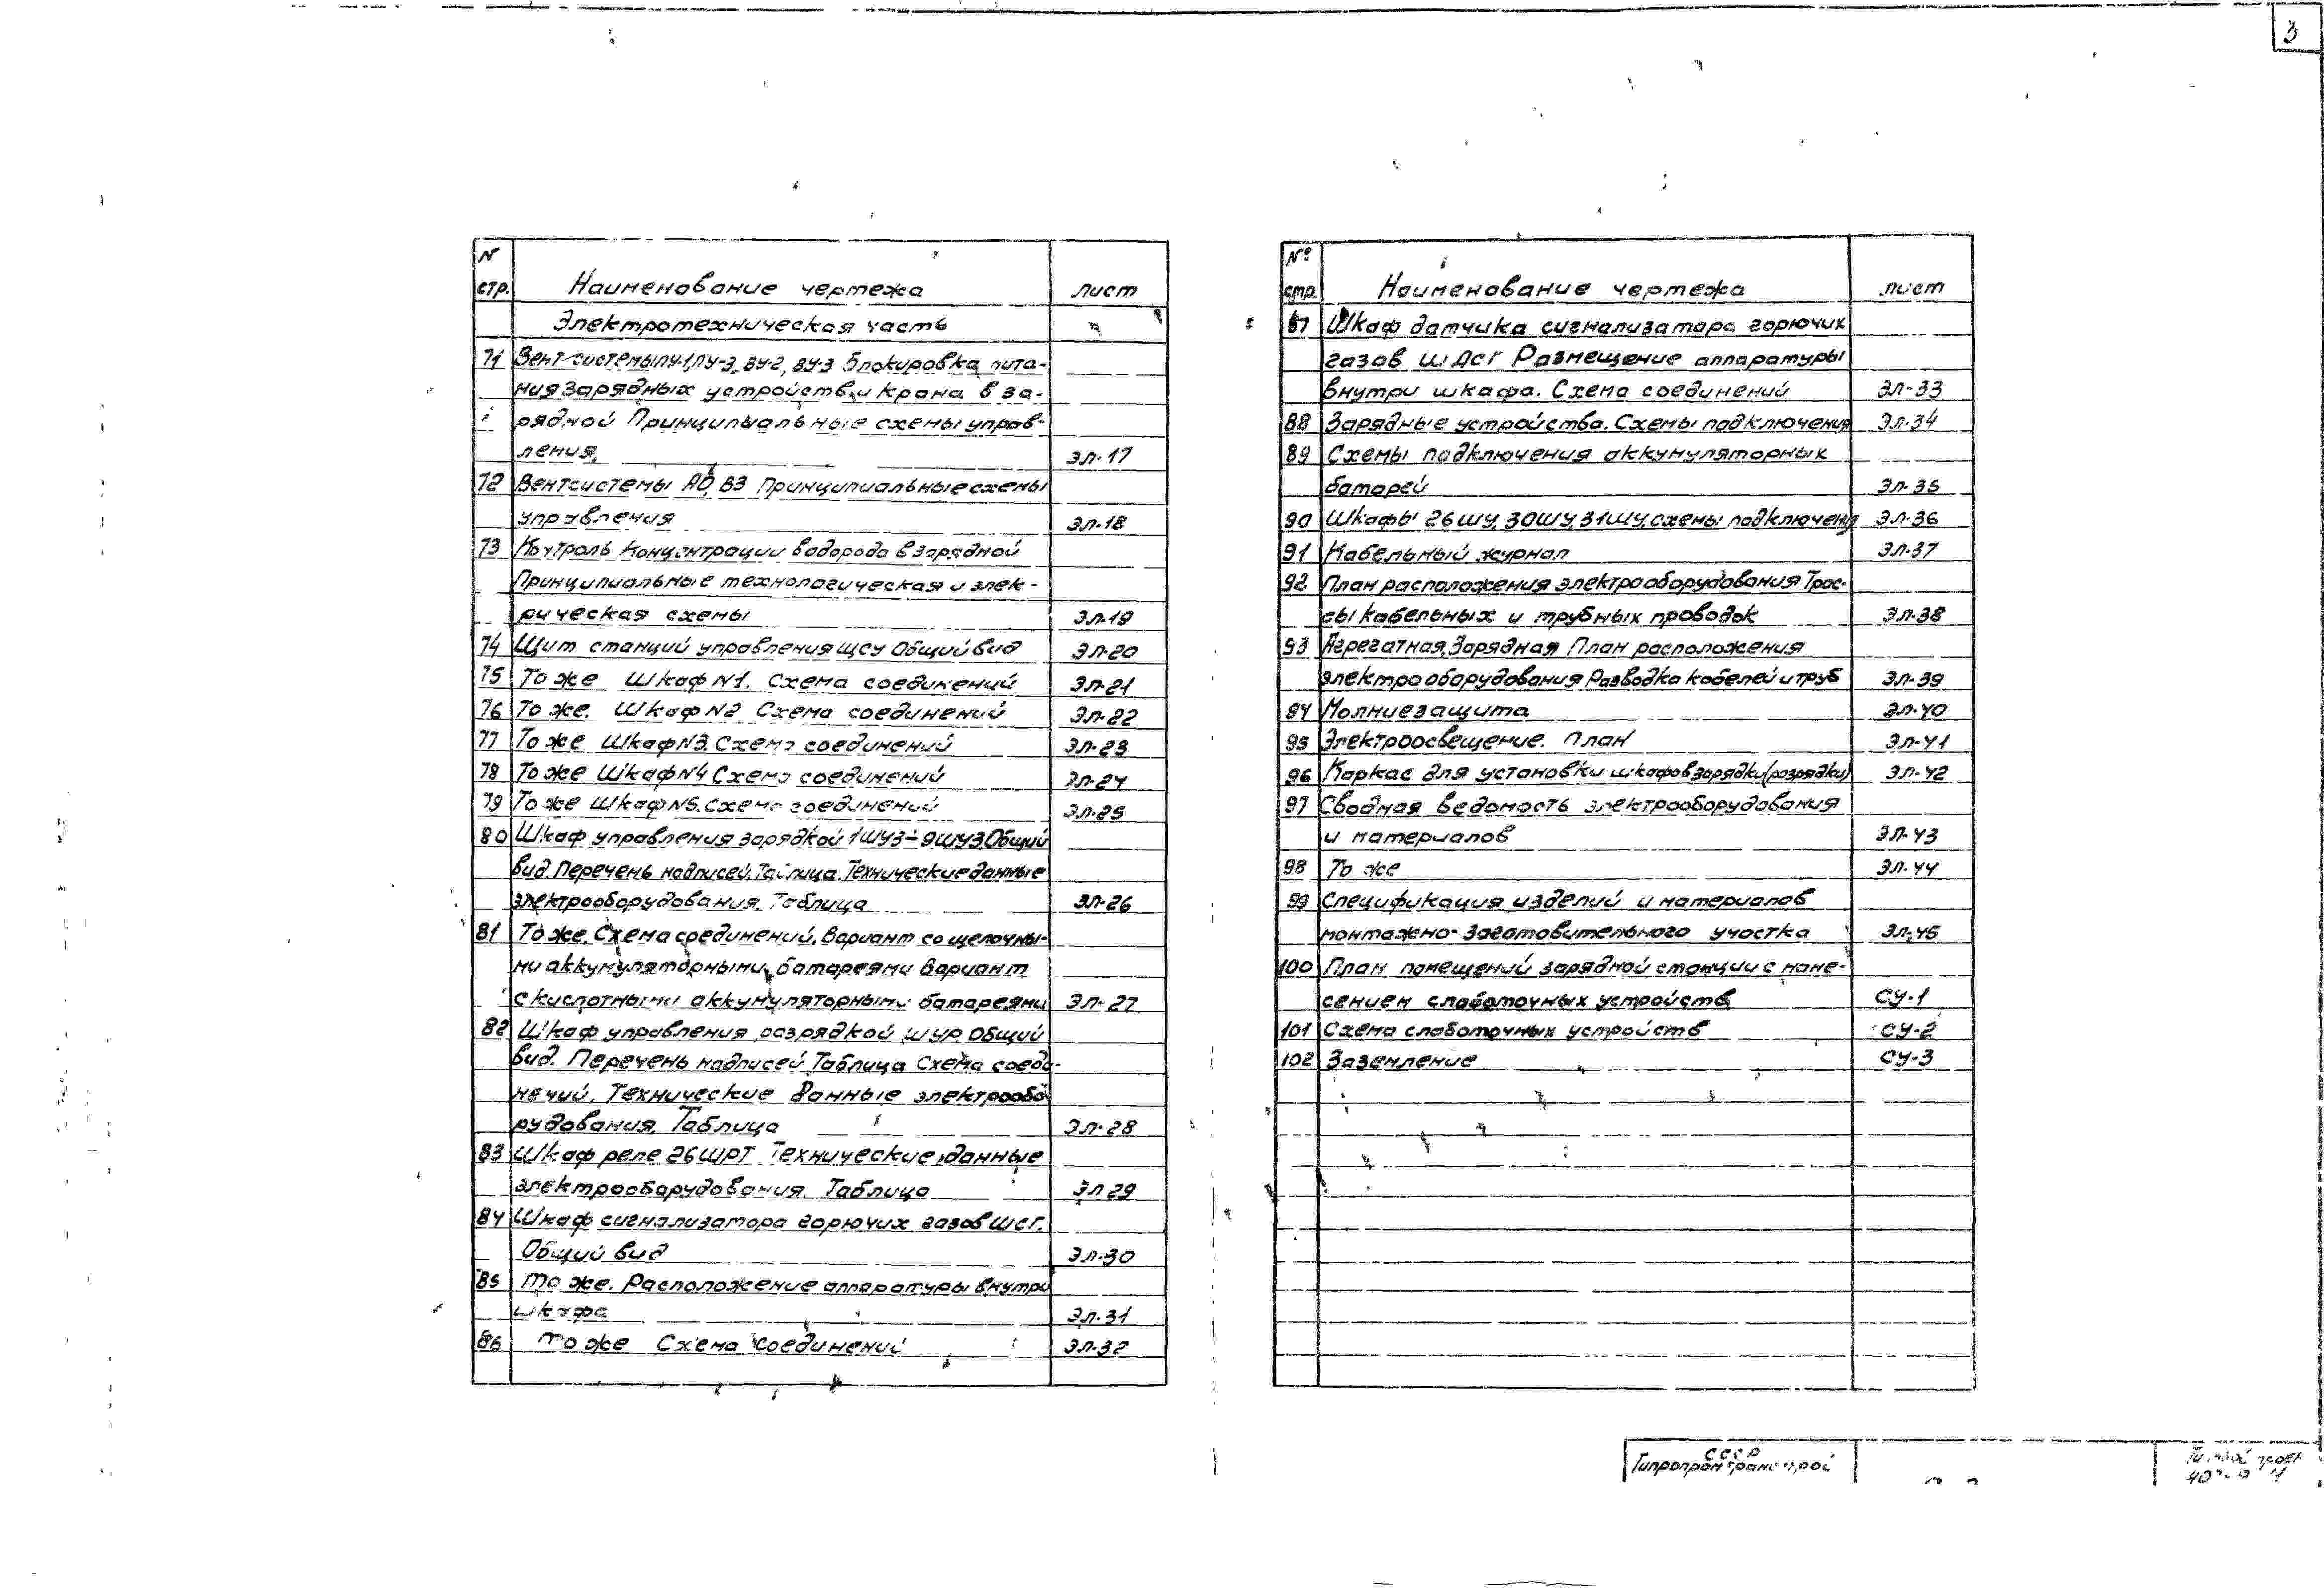 3
N
стр. Наименование чертежа лист
Электротехническая часть
71 Вентсистемы ПУ-1, ПУ-3, ВУ-2, ВУ-3 Блокировка пита-
ния зарядных устройств и крана в за-
рядной Принципиальные схемы управ-
ления. ЭЛ-17
72 Вентсистемы АО, В3 Принципиальные схемы
управления ЭЛ-18
73 Контроль концентрации водорода в зарядной
Принципиальные технологическая и элек-
рическая схемы ЭЛ-19
74 Щит станций управления ЩСУ Общий вид ЭЛ-20
75 То же Шкаф N1. Схема соединений ЭЛ-21
76 То же. Шкаф N2 Схема соединений ЭЛ-22
77 То же Шкаф N3. Схема соединений ЭЛ-23
78 То же Шкаф N4 Схема соединений ЭЛ-24
79 То же Шкаф N5. Схема соединений ЭЛ-25
80 Шкаф управления зарядкой 1ШУЗ÷9ШУЗ. Общий
вид. Перечень надписей. Таблица. Технические данные
электрооборудования. Таблица ЭЛ-26
81 То же. Схема соединений. Вариант со щелочны-
ми аккумуляторными батареями Вариант
с кислотными аккумуляторными батареями ЭЛ-27
82 Шкаф управления разрядкой ШУР Общий
вид. Перечень надписей Таблица Схема соеди-
нений. Технические данные электрообо
рудования. Таблица ЭЛ-28
83 Шкаф реле 26ШРТ Технические данные
электрооборудования. Таблица ЭЛ 29
84 Шкаф сигнализатора горючих газов ШСГ.
Общий вид ЭЛ-30
85 То же. Расположение аппаратуры внутри
шкафа ЭЛ-31
86 То же Схема соединений ЭЛ-32
№
стр. Наименование чертежа лист
87 Шкаф датчика сигнализатора горючих
газов ШДСГ Размещение аппаратуры
внутри шкафа. Схема соединений ЭЛ-33
88 Зарядные устройства. Схемы подключения ЭЛ-34
89 Схемы подключения аккумуляторных
батарей ЭЛ-35
90 Шкафы 26ШУ, 30ШУ, 31ШУ, схемы подключения ЭЛ-36
91 Кабельный журнал ЭЛ-37
92 План расположения электрооборудования Трас-
сы кабельных и трубных проводок ЭЛ-38
93 Агрегатная, Зарядная План расположения
электрооборудования Разводка кабелей и труб ЭЛ-39
94 Молниезащита ЭЛ-40
95 Электроосвещение. План ЭЛ-41
96 Каркас для установки шкафов зарядки (разрядки) ЭЛ-42
97 Сводная ведомость электрооборудования
и материалов ЭЛ-43
98 То же ЭЛ-44
99 Спецификация изделий и материалов
монтажно-заготовительного участка ЭЛ-45
100 План помещений зарядной станции с нане-
сением слаботочных устройств СУ-1
101 Схема слаботочных устройств СУ-2
102 Заземление СУ-3
СССР
Гипропромтрансстрой